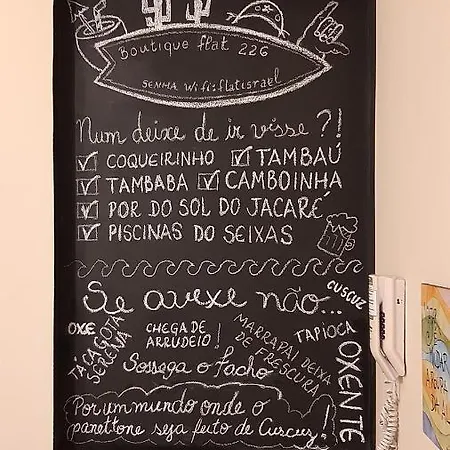 Boutique flat 226
SENHA Wifi: flatisrael
Num deixe de ir visse ?!
COQUEIRINHO TAMBAÚ
TAMBABA CAMBOINHA
POR DO SOL DO JACARÉ
PISCINAS DO SEIXAS
Se avexe não...
CUSCUZ
OXE
TÁ CAGOTA
SERENA
CHEGA DE
ARRUDEIO!
MARRAPAI DEIXA
DE FRESCURA
TAPIOCA
OXENTE
Sossega o facho
Por um mundo onde o
panettone seja feito de Cuscuz!